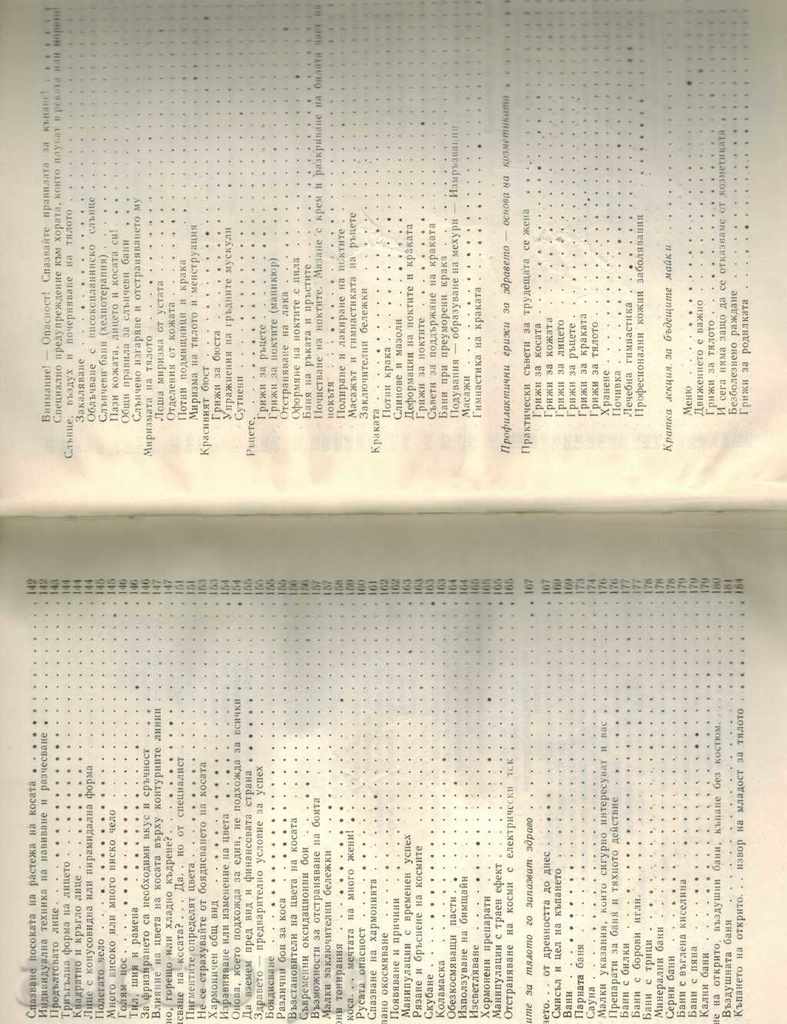 Спазване посоката на растежа на косата 142
Индивидуална техника на навиване и разчесване 142
Продълговато лице 143
Триъгълна форма на лицето 144
Квадратно и кръгло лице 144
Лице с конусовидна или пирамидална форма 144
Полегато чело 145
Много високо или много ниско чело 145
Голям нос 146
Тил, шия и рамена 146
За фризирането са необходими вкус и сръчност 146
Влияние на цвета на косата върху контурните линии 147
но, горещо или хладно къдрене? 147
сване на косата? Да, но от специалист 151
Пигментите определят цвета 151
Не се страхувайте от боядисването на косата 153
Хармоничен общ вид 153
Изравняване или изменение на цвета 154
Онова, което подхожда за един, не подхожда за всички 154
Да вземем пред вид и финансовата страна 155
Здравето — предварително условие за успех 155
Боядисване 155
Различни бои за коса 155
Възстановители на цвета на косата 156
Съвременни оксидационни бои 156
Възможности за отстраняване на боита 157
Малки заключителни бележки 157
ни тонирания 158
коса... мечтата на много жени! 159
Русата опасност 160
Спазване на хармонията 161
вано окосмяване 162
Появяване и причини 162
Манипулации с временен успех 163
Рязане и бръснене на космите 163
Скубане 163
Коламаска 163
Обезкосмяващи пасти 164
Използуване на бимщайн 164
Изсветляване 165
Хормонени препарати 165
Манипулации с траен ефект 165
Отстраняване на косми с електрически ток 165
ите за тялото го запазват здраво 167
нето... от древността до днес 167
Смисъл и цел на къпането 169
Вани 169
Парната баня 173
Сауна 174
Малки указания, които сигурно интересуват и вас 176
Препарати за баня и тяхното действие 176
Бани с билки 177
Бани с борови игли 177
Бани с трици 178
Минерални бани 178
Серни бани 178
Бани с въглена киселина 179
Бани с пяна 179
Кални бани 179
не на открито, въздушни бани, къпане без костюм 180
Въздушната баня 181
Къпането на открито... извор на младост за тялото 184
Внимание! — Опасност! Спазвайте правилата за къпане!
Специално предупреждение към хората, които плуват в реката или морето!
Слънце, въздух и почерняване на тялото
Закаляване
Облъчване с високопланинско слънце
Слънчеви бани (хелиотерапия)
Пази кожата, лицето и косата си!
Общи правила за слънчеви бани
Слънчево изгаряне и отстраняването му
Миризмата на тялото
Лоша миризма от устата
Отделения от кожата
Потни подмишници и крака
Миризма на тялото и менструация
Красивият бюст
Грижи за бюста
Упражнения на гръдните мускули
Сутиени
Ръцете
Грижи за ръцете
Грижи за ноктите (маникюр)
Отстраняване на лака
Оформяне на ноктите с пила
Баня на ръката и пръстите
Почистване на ноктите. Мазане с крем и разкриване на бялата част на
нокътя
Полиране и лакиране на ноктите
Масажът и гимнастиката на ръцете
Заключителни бележки
Краката
Потни крака
Слинове и мазоли
Деформации на ноктите и краката
Грижи за ноктите
Съвети за поддържане на краката
Бани при преуморени крака
Подувания — образуване на мехури — Измръзвания
Масажи
Гимнастика на краката
Профилактични грижи за здравето — основа на козметиката
Практически съвети за трудещата се жена
Грижи за косата
Грижи за кожата
Грижи за лицето
Грижи за ръцете
Грижи за краката
Грижи за тялото
Хранене
Почивка
Лечебна гимнастика
Професионални кожни заболявания
Кратка лекция за бъдещите майки
Меню
Движението е важно
Грижи за тялото
И сега няма защо да се отказваме от козметиката
Безболезнено раждане
Грижи за родилката